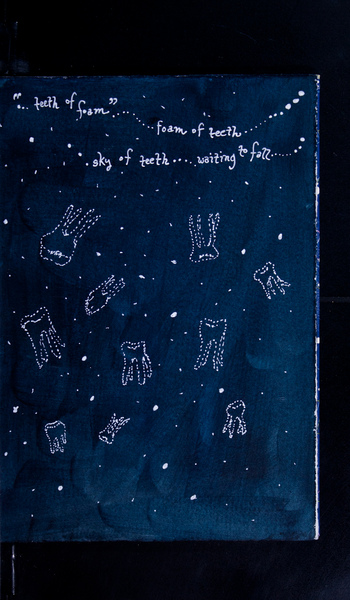 "... teeth of foam"......
foam of teeth......
. sky of teeth .... waiting to fall......